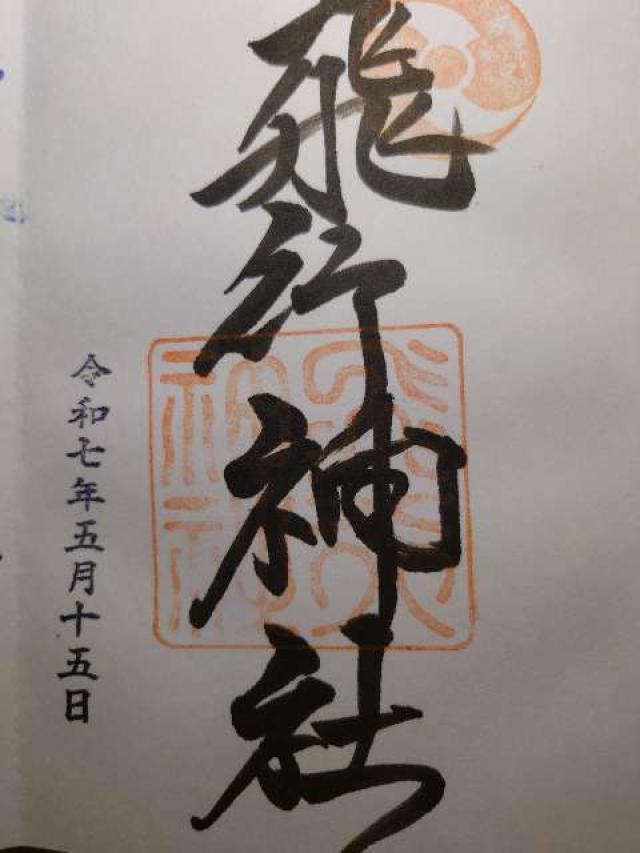 飛行神社
令和七年五月十五日